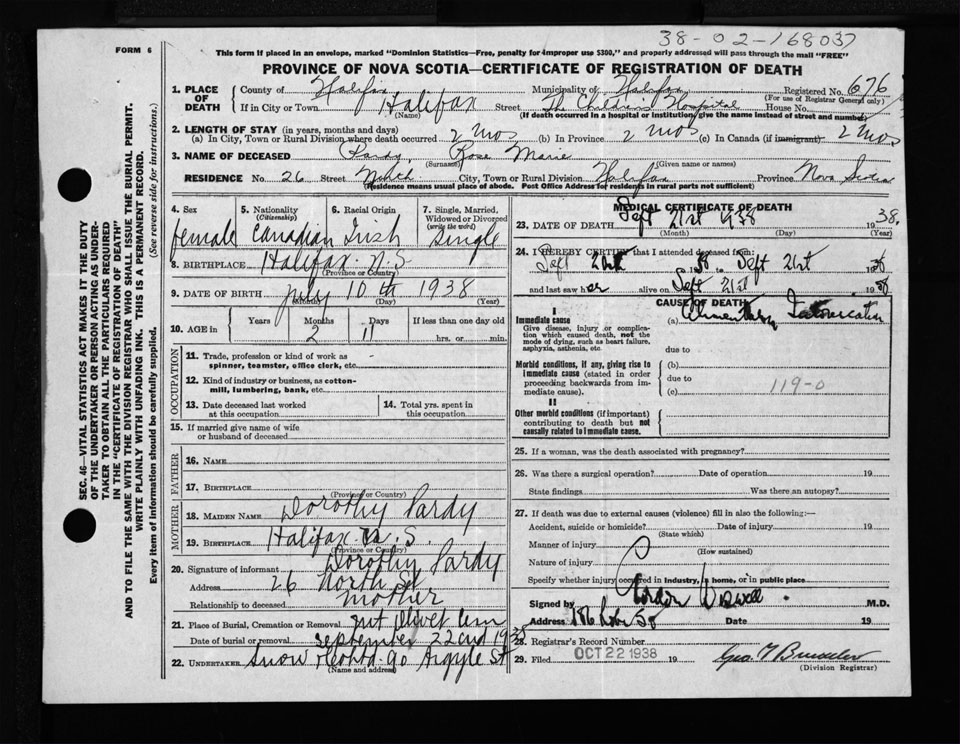 38-02-168037
FORM 6
This form if placed in an envelope, marked "Dominion Statistics—Free, penalty for improper use $300," and properly addressed will pass through the mail "FREE"
PROVINCE OF NOVA SCOTIA—CERTIFICATE OF REGISTRATION OF DEATH
1. PLACE OF DEATH
County of Halifax Municipality of Halifax Registered No. 676
(For use of Registrar General only)
If in City or Town Halifax Street The Childrens Hospital House No.
(Name) (If death occurred in a hospital or institution, give the name instead of street and number)
2. LENGTH OF STAY (in years, months and days)
(a) In City, Town or Rural Division where death occurred 2 mos (b) In Province 2 mos (c) In Canada (if immigrant) 2 mos
3. NAME OF DECEASED Pardy, Rose Marie
(Surname) (Given name or names)
RESIDENCE No. 26 Street North City, Town or Rural Division Halifax Province Nova Scotia
(Residence means usual place of abode. Post Office Address for residents in rural parts not sufficient)
4. Sex
female
5. Nationality
(Citizenship)
Canadian
6. Racial Origin
Irish
7. Single, Married, Widowed or Divorced
(write the word)
Single
8. BIRTHPLACE Halifax N.S
(Province or Country)
9. DATE OF BIRTH July 10th 1938
(Month) (Day) (Year)
10. AGE in
Years Months Days If less than one day old
2 11 hrs. or min.
OCCUPATION
11. Trade, profession or kind of work as spinner, teamster, office clerk, etc. -
12. Kind of industry or business, as cotton-mill, lumbering, bank, etc.
13. Date deceased last worked at this occupation
14. Total yrs. spent in this occupation
15. If married give name of wife or husband of deceased
FATHER
16. NAME
17. BIRTHPLACE
(Province or Country)
MOTHER
18. MAIDEN NAME Dorothy Pardy
19. BIRTHPLACE Halifax N.S.
(Province or Country)
20. Signature of informant Dorothy Pardy
Address 26 North St
Relationship to deceased mother
21. Place of Burial, Cremation or Removal Mt Olivet Cem
Date of burial or removal September 22nd 1938
22. UNDERTAKER Snow & Co Ltd. 90 Argyle St
(Name and address)
MEDICAL CERTIFICATE OF DEATH
23. DATE OF DEATH Sept 21st 1938 1938
(Month) (Day) (Year)
24. I HEREBY CERTIFY that I attended deceased from:
Sept 21st 1938 Sept 21st 1938
and last saw her alive on Sept 21st 1938
CAUSE OF DEATH
I
Immediate cause
Give disease, injury or complication which caused death, not the mode of dying, such as heart failure, asphyxia, asthenia, etc.
(a) Alimentary Intoxication
due to
Morbid conditions, if any, giving rise to immediate cause (stated in order proceeding backwards from immediate cause).
(b)
due to
(c) 119-0
II
Other morbid conditions (if important) contributing to death but not causally related to immediate cause.
25. If a woman, was the death associated with pregnancy?
26. Was there a surgical operation? Date of operation 19
State findings Was there an autopsy?
27. If death was due to external causes (violence) fill in also the following:—
Accident, suicide or homicide? Date of injury 19
(State which)
Manner of injury
(How sustained)
Nature of injury
Specify whether injury occurred in Industry, in home, or in public place
Signed by Gordon Wiswell M.D.
Address Date 19
28. Registrar's Record Number
29. Filed OCT 22 1938 19
(Division Registrar)
SEC. 46—VITAL STATISTICS ACT MAKES IT THE DUTY
OF THE UNDERTAKER OR PERSON ACTING AS UNDER-
TAKER TO OBTAIN ALL THE PARTICULARS REQUIRED
IN THE "CERTIFICATE OF REGISTRATION OF DEATH"
AND TO FILE THE SAME WITH THE DIVISION REGISTRAR WHO SHALL ISSUE THE BURIAL PERMIT.
WRITE PLAINLY WITH UNFADING INK. THIS IS A PERMANENT RECORD.
Every item of information should be carefully supplied. (See reverse side for instructions.)